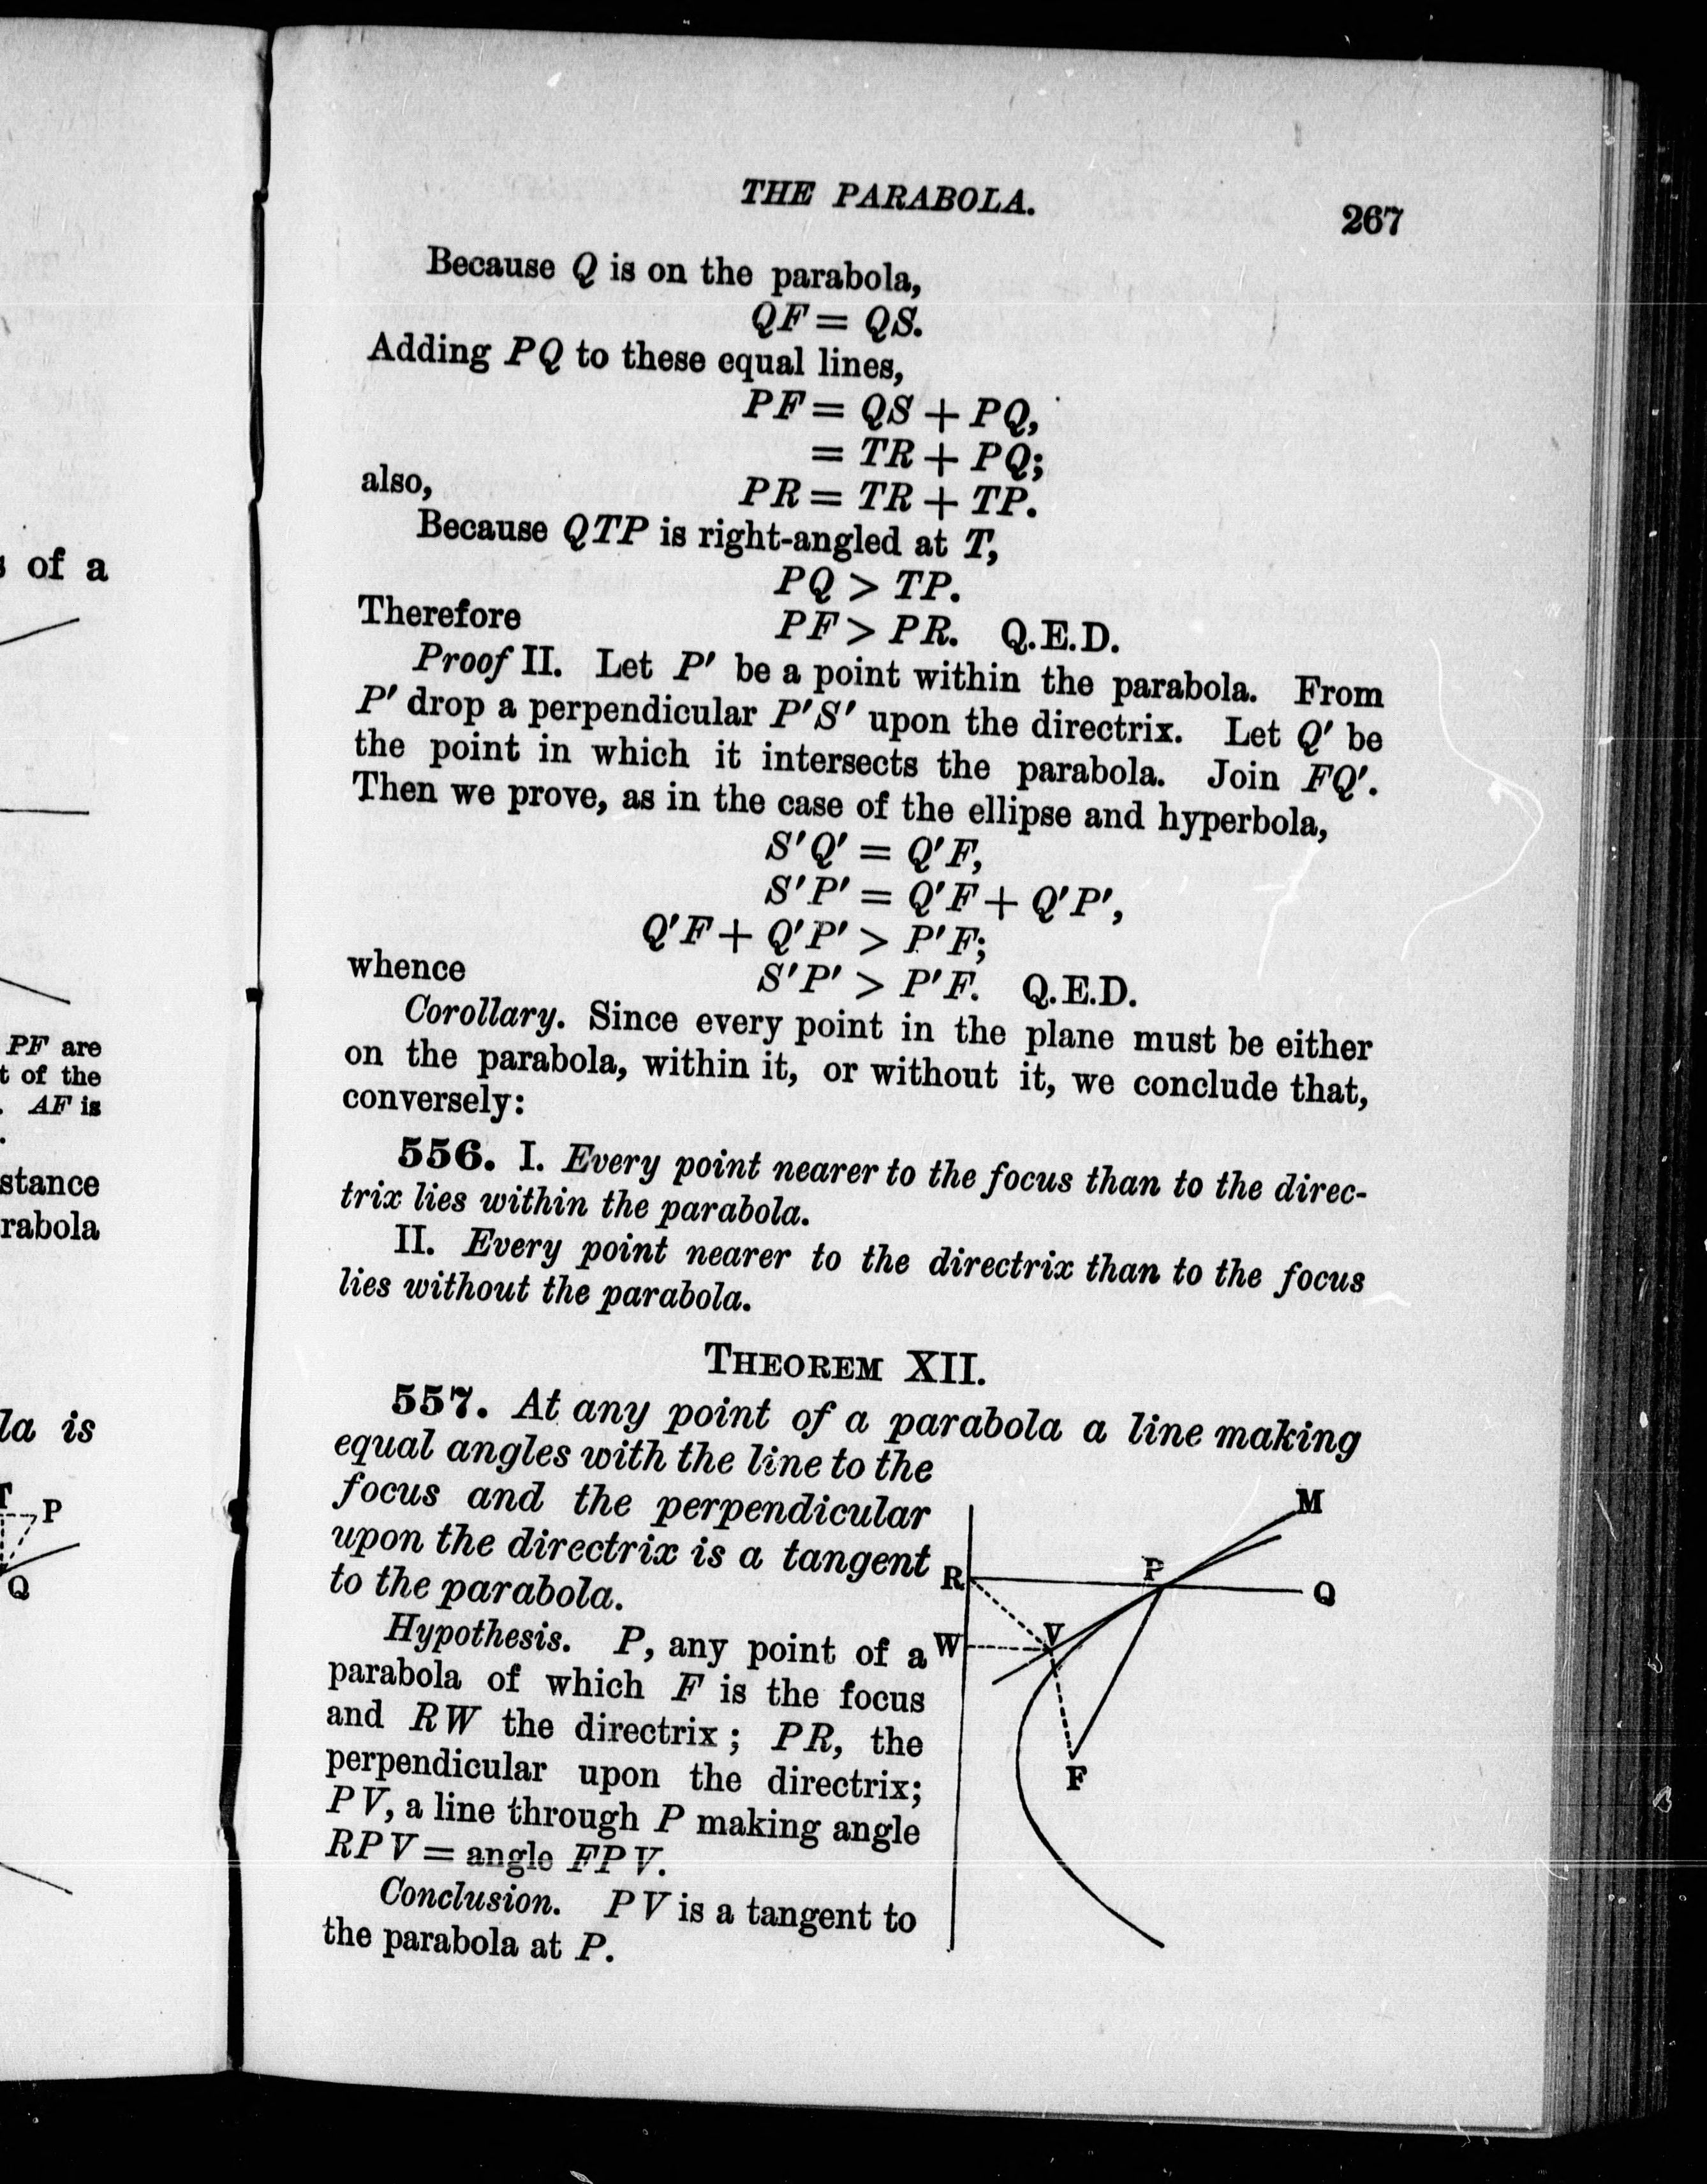 of a
PF are
t of the
AF is
stance
rabola
la is
T
P
Q
THE PARABOLA.
267
Because Q is on the parabola,
QF = QS.
Adding PQ to these equal lines,
PF = QS + PQ,
= TR + PQ;
also, PR = TR + TP.
Because QTP is right-angled at T,
PQ > TP.
Therefore PF > PR. Q.E.D.
Proof II. Let P′ be a point within the parabola. From
P′ drop a perpendicular P′S′ upon the directrix. Let Q′ be
the point in which it intersects the parabola. Join FQ′.
Then we prove, as in the case of the ellipse and hyperbola,
S′Q′ = Q′F,
S′P′ = Q′F + Q′P′,
Q′F + Q′P′ > P′F;
whence S′P′ > P′F. Q.E.D.
Corollary. Since every point in the plane must be either
on the parabola, within it, or without it, we conclude that,
conversely:
556. I. Every point nearer to the focus than to the direc-
trix lies within the parabola.
II. Every point nearer to the directrix than to the focus
lies without the parabola.
THEOREM XII.
557. At any point of a parabola a line making
equal angles with the line to the
focus and the perpendicular
upon the directrix is a tangent
to the parabola.
Hypothesis. P, any point of a
parabola of which F is the focus
and RW the directrix; PR, the
perpendicular upon the directrix;
PV, a line through P making angle
RPV = angle FPV.
Conclusion. PV is a tangent to
the parabola at P.
M
P
R
Q
V
W
F